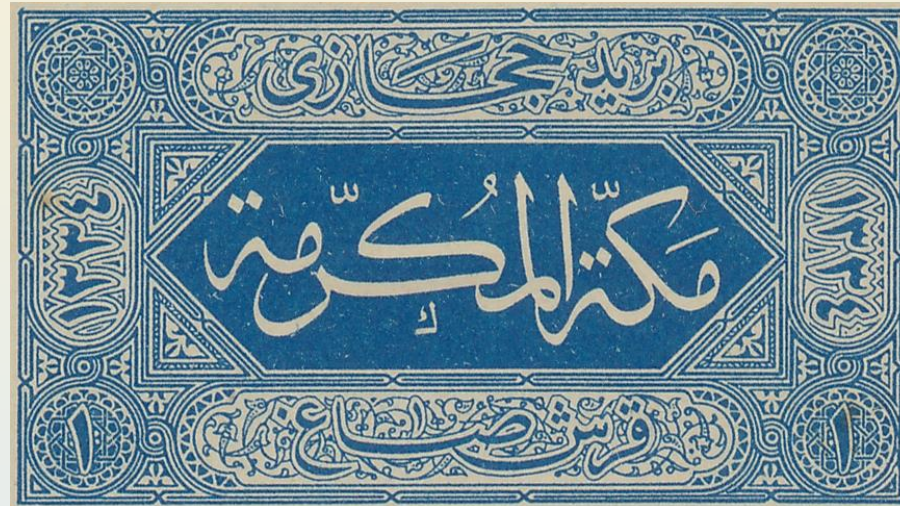 بريد حجازى
١٣٣٤
مكّة المكُرّمة
١٣٣٤
١ قرش صاغ ١